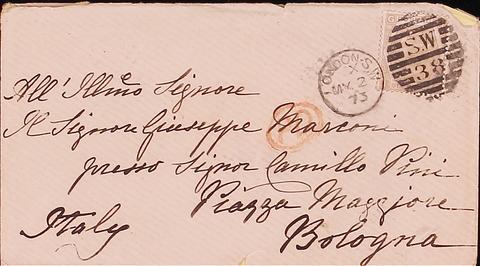 LONDON.S.W
X
MY 2
73
S.W
38
All' Illmo Signore
Il Signore Giuseppe Marconi
presso Signor Camillo Pini
Piazza Maggiore
Italy
Bologna